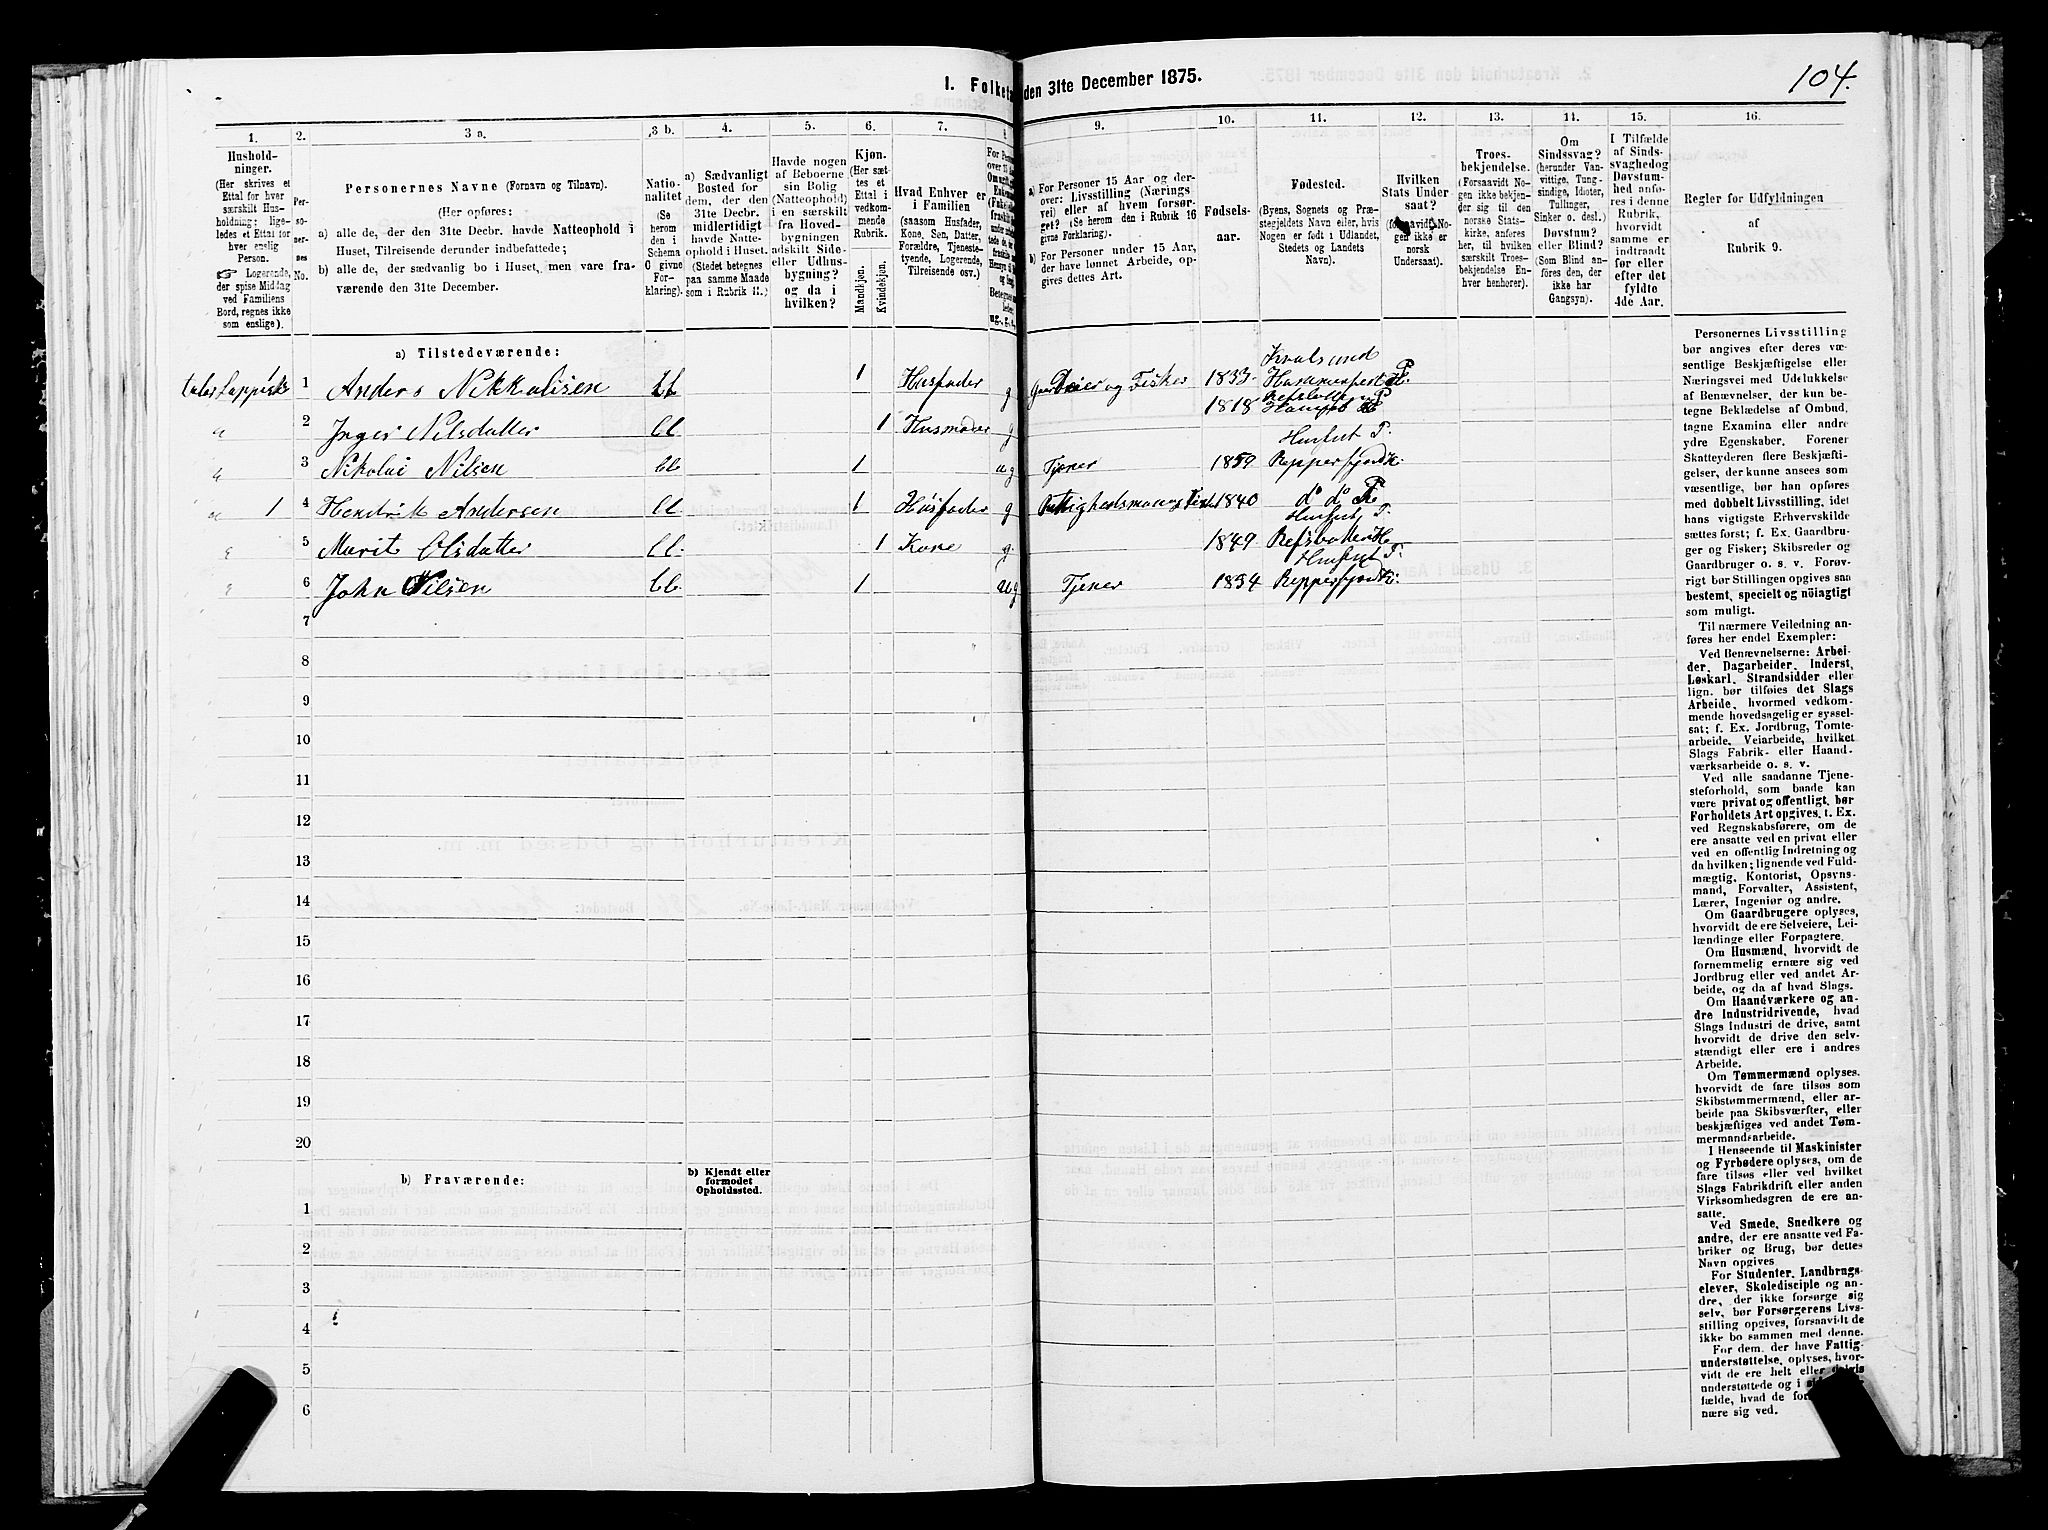 I. Folketæ den 31te December 1875.
104.
1. 2. 3 a. 3 b. 4. 5. 6. 7. 8 9. 10. 11. 12. 13. 14. 15. 16.
Hushold-
ninger.
(Her skrives et
Ettal for hver
særskilt Hus-
holdning; lige-
ledes et Ettal for
hver enslig
Person.
☞ Logerende,
der spise Middag
ved Familiens
Bord, regnes ikke
som enslige).
Per-
so-
ner-
nes
No.
Personernes Navne (Fornavn og Tilnavn).
(Her opføres:
a) alle de, der den 31te Decbr. havde Natteophold i
Huset, Tilreisende derunder indbefattede;
b) alle de, der sædvanlig bo i Huset, men vare fra-
værende den 31te December.
Natio-
nalitet
(Se
herom
den i
Schema
C givne
For-
klaring).
a) Sædvanligt
Bosted for
dem, der den
31te Decbr.
midlertidigt
havde Natte-
ophold i Huset.
(Stedet betegnes
paa samme Maade
som i Rubrik 11.)
Havde nogen
af Beboerne
sin Bolig
(Natteophold)
i en særskilt
fra Hoved-
bygningen
adskilt Side-
eller Udhus-
bygning?
og da i
hvilken?
Kjøn.
(Her sæt-
tes et
Ettal i
vedkom-
mende
Rubrik.
Mandkjøn.
Kvindekjøn.
Hvad Enhver er
i Familien
(saasom Husfader,
Kone, Søn, Datter,
Forældre, Tjeneste-
tyende, Logerende,
Tilreisende osv.)
For Person
over 15
ug., g.,
a) For Personer 15 Aar og der-
over: Livsstilling (Nærings
vei) eller af hvem forsør-
get? (Se herom den i Rubrik 16
givne Forklaring).
b) For Personer under 15 Aar,
der have lønnet Arbeide, op-
gives dettes Art.
Fødsels-
aar.
Fødested.
(Byens, Sognets og Præ-
stegjeldets Navn eller, hvis
Nogen er født i Udlandet,
Stedets og Landets
Navn).
Hvilken
Stats Under-
saat?
(forsaavidt No-
gen ikke er
norsk
Undersaat).
Troes-
bekjendelse.
(Forsaavidt No-
gen ikke bekjen-
der sig til den
norske Stats-
kirke, anføres
her, til hvilken
særskilt Troes-
bekjendelse En-
hver henhører).
Om
Sindssvag?
(herunder Van-
vittige, Tung-
sindige, Idioter,
Tullinger,
Sinker o. desl.)
Døvstum?
eller Blind?
(Som Blind an-
føres den, der
ikke har
Gangsyn).
I Tilfælde
af Sinds-
svaghedog
Døvstum-
hed anfø-
res i denne
Rubrik,
hvorvidt
samme er
indtraadt
før eller
efter det
fyldte
4de Aar.
Regler for Udfyldningen
af
Rubrik 9.
a) Tilstedeværende:
taler lappisk 1 Anders Nikkolisen bb 1 Husfader g Gaardeier og Fisker 1833 Kvalsund Hammerfest P.
" 2 Inger Nilsdatter bb 1 Husmoder g 1818
" 3 Nikolai Nilsen bb 1 ug Tjener 1859 Hmfest P. Repperfjord K.
" 1 4 Hendrik Andersen bb 1 Husfader g 1840 do do
" 5 Marit Olsdatter bb. 1 Kone g. 1849 Hmfest P. Refsbotten K
" 6 John Nilsen bb 1 ug Tjener 1834 Hmfest P. Repperfjord K.
7
8
9
10
11
12
13
14
15
16
17
18
19
20
b) Fraværende:
b) Kjendt eller
formodet
Opholdssted.
1
2
3
4
5
6
Personernes Livsstilling
bør angives efter deres væ-
sentlige Beskjæftigelse eller
Næringsvei med Udelukkelse
af Benævnelser, der kun be-
tegne Beklædelse af Ombud,
tagne Examina eller andre
ydre Egenskaber. Forener
Skatteyderen flere Beskjæfti-
gelser, der kunne ansees som
væsentlige, bør han opføres
med dobbelt Livsstilling, idet
hans vigtigste Erhvervskilde
sættes først; f. Ex. Gaardbru-
ger og Fisker; Skibsreder og
Gaardbruger o. s. v. Forøv-
rigt bør Stillingen opgives saa
bestemt, specielt og nöiagtigt
som muligt.
Til nærmere Veiledning an-
føres her endel Exempler:
Ved Benævnelserne: Arbei-
der, Dagarbeider, Inderst,
Løskarl, Strandsidder eller
lign. bør tilføies det Slags
Arbeide, hvormed vedkom-
mende hovedsagelig er syssel-
sat; f. Ex. Jordbrug, Tomte-
arbeide, Veiarbeide, hvilket
Slags Fabrik- eller Haand-
værksarbeide o. s. v.
Ved alle saadanne Tjene-
steforhold, som baade kan
være privat og offentligt, bør
Forholdets Art opgives, t. Ex.
ved Regnskabsførere, om de
ere ansatte ved en privat eller
ved en offentlig Indretning og
da hvilken; lignende ved Fuld-
mægtig, Kontorist, Opsyns-
mand, Forvalter, Assistent,
Lærer, Ingeniør og andre.
Om Gaardbrugere oplyses,
hvorvidt de ere Selveiere, Lei-
lændinge eller Forpagtere.
Om Husmænd, hvorvidt de
fornemmelig ernære sig ved
Jordbrug eller ved andet Ar-
beide, og da af hvad Slags.
Om Haandværkere og an-
dre Industridrivende, hvad
Slags Industri de drive, samt
hvorvidt de drive den selv-
stændigt eller ere i andres
Arbeide.
Om Tømmermænd oplyses,
hvorvidt de fare tilsøs som
Skibstømmermænd, eller ar-
beide paa Skibsværfter, eller
beskjæftiges ved andet Tøm-
mermandsarbeide.
I Henseende til Maskinister
og Fyrbødere oplyses, om de
fare tilsøs eller ved hvilket
Slags Fabrikdrift eller anden
Virksomhedsgren de ere an-
satte.
Ved Smede, Snedkere og
andre, der ere ansatte ved Fa-
briker og Brug, bør dettes
Navn opgives
For Studenter, Landbrugs-
elever, Skoledisciple og an-
dre, der ikke forsørge sig
selv, bør Forsørgerens Livs-
stilling opgives, forsaavidt de
ikke bo sammen med denne.
For dem, der have Fattig-
understøttelse, oplyses, hvor-
vidt de ere helt eller delvis
understøttede og i
fælde, hvad de
nære sig ved.